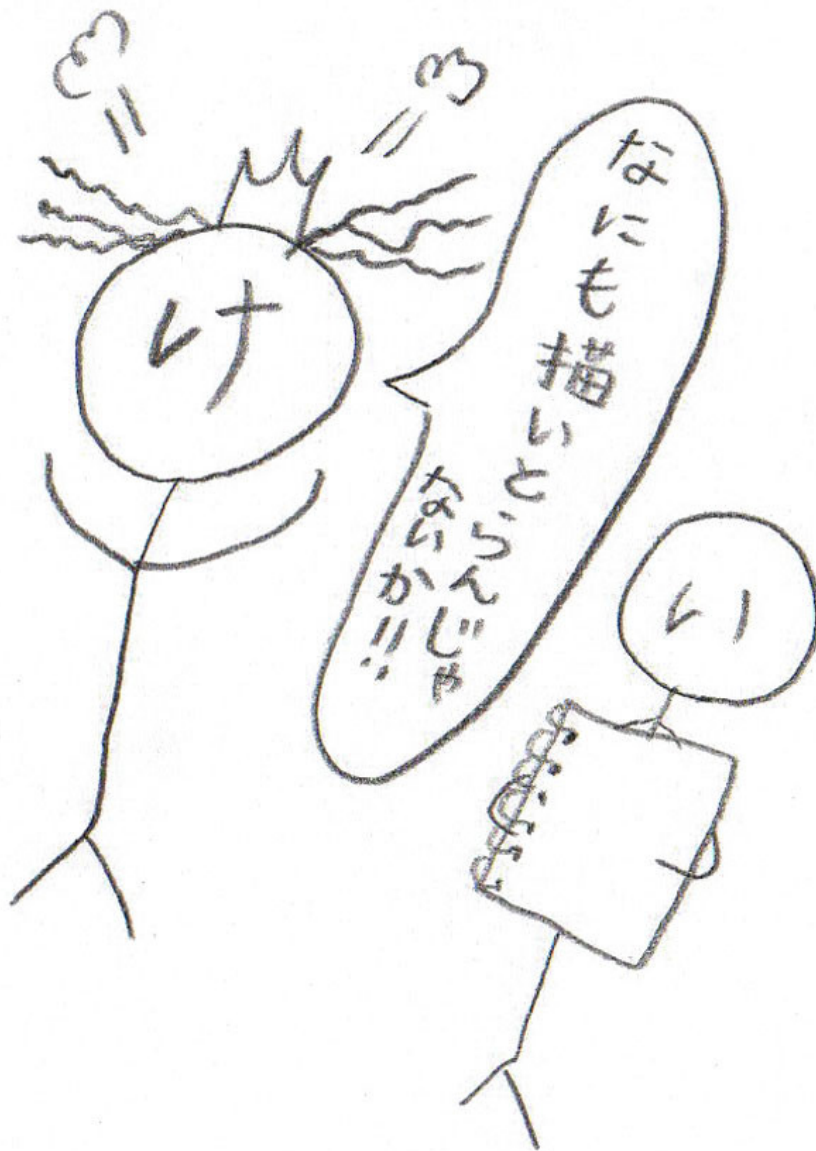 け
なにも描いとらんじゃ
ないか!!
い